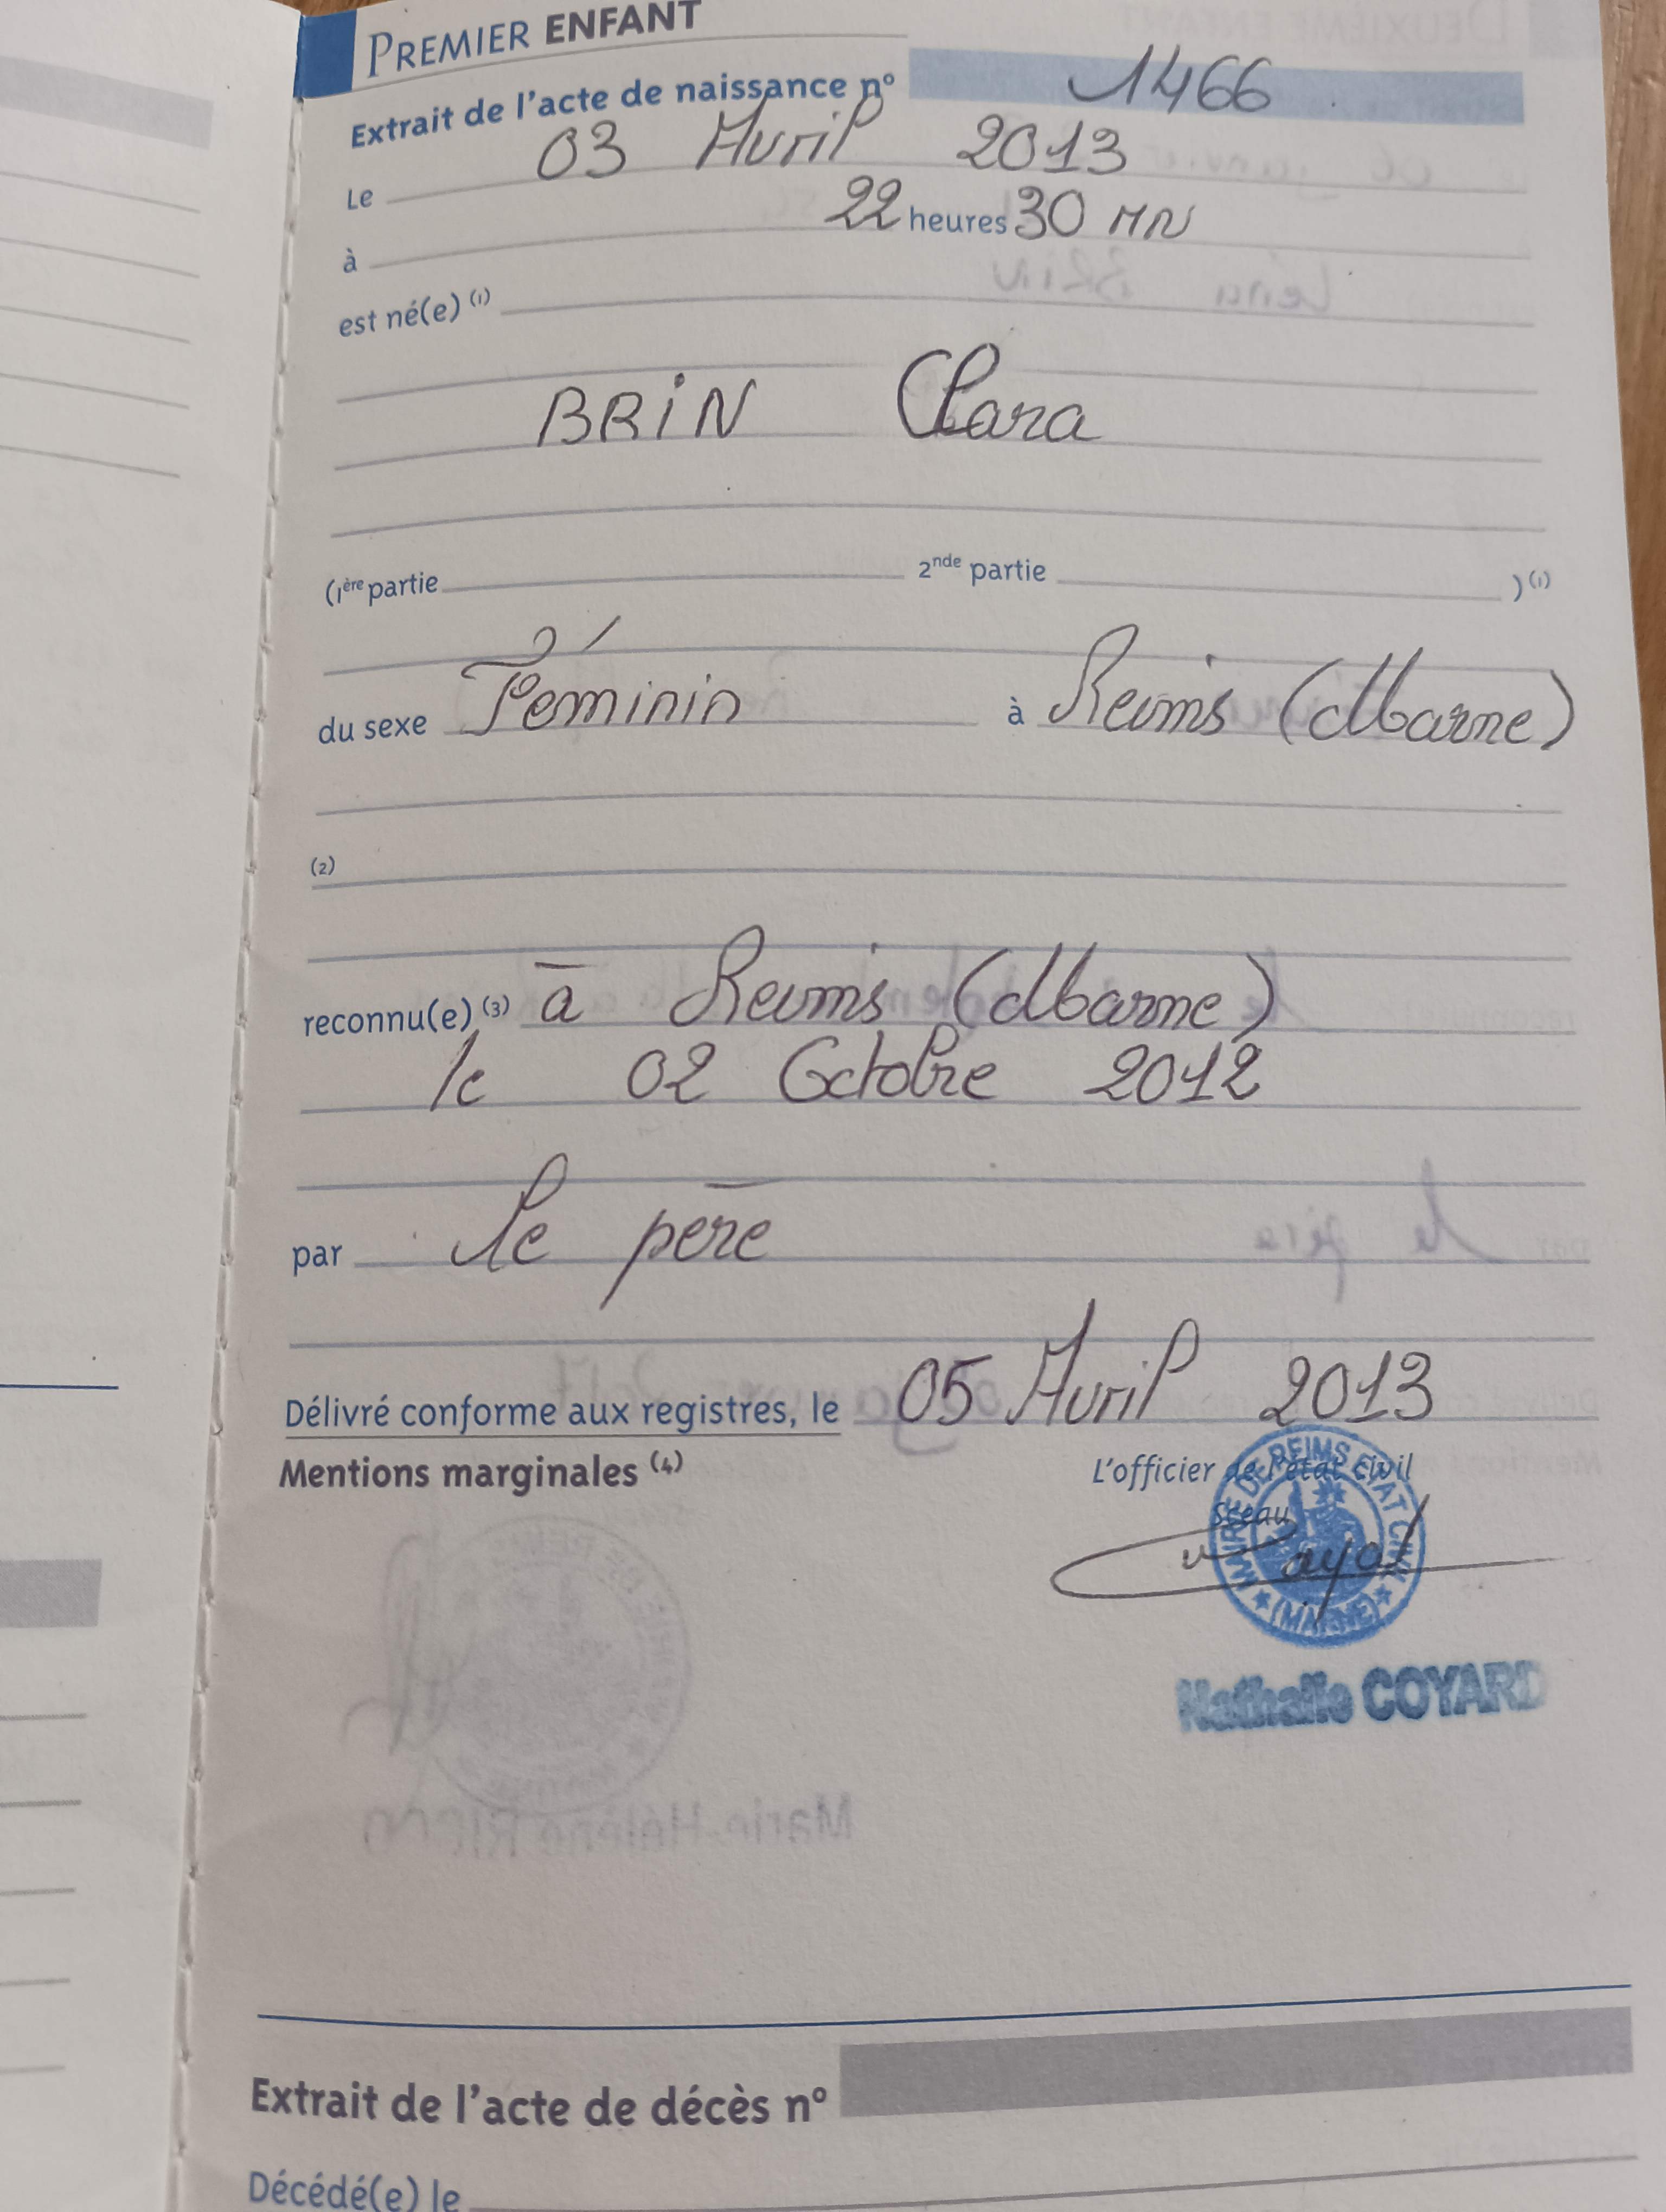 PREMIER ENFANT
Extrait de l'acte de naissance nº 1466
Le 03 Avril 2013
à 22 heures 30 MN
est né(e) (1)
BRIN Clara
(1ère partie 2nde partie ) (1)
du sexe Féminin à Reims (Marne)
(2)
reconnu(e) (3) à Reims (Marne)
le 02 Octobre 2012
par le père
Délivré conforme aux registres, le 05 Avril 2013
Mentions marginales (4)
L'officier de l'état civil
Sceau
MAIRIE DE REIMS ETAT CIVIL
(MARNE)
Nathalie COYARD
Extrait de l'acte de décès nº
Décédé(e) le